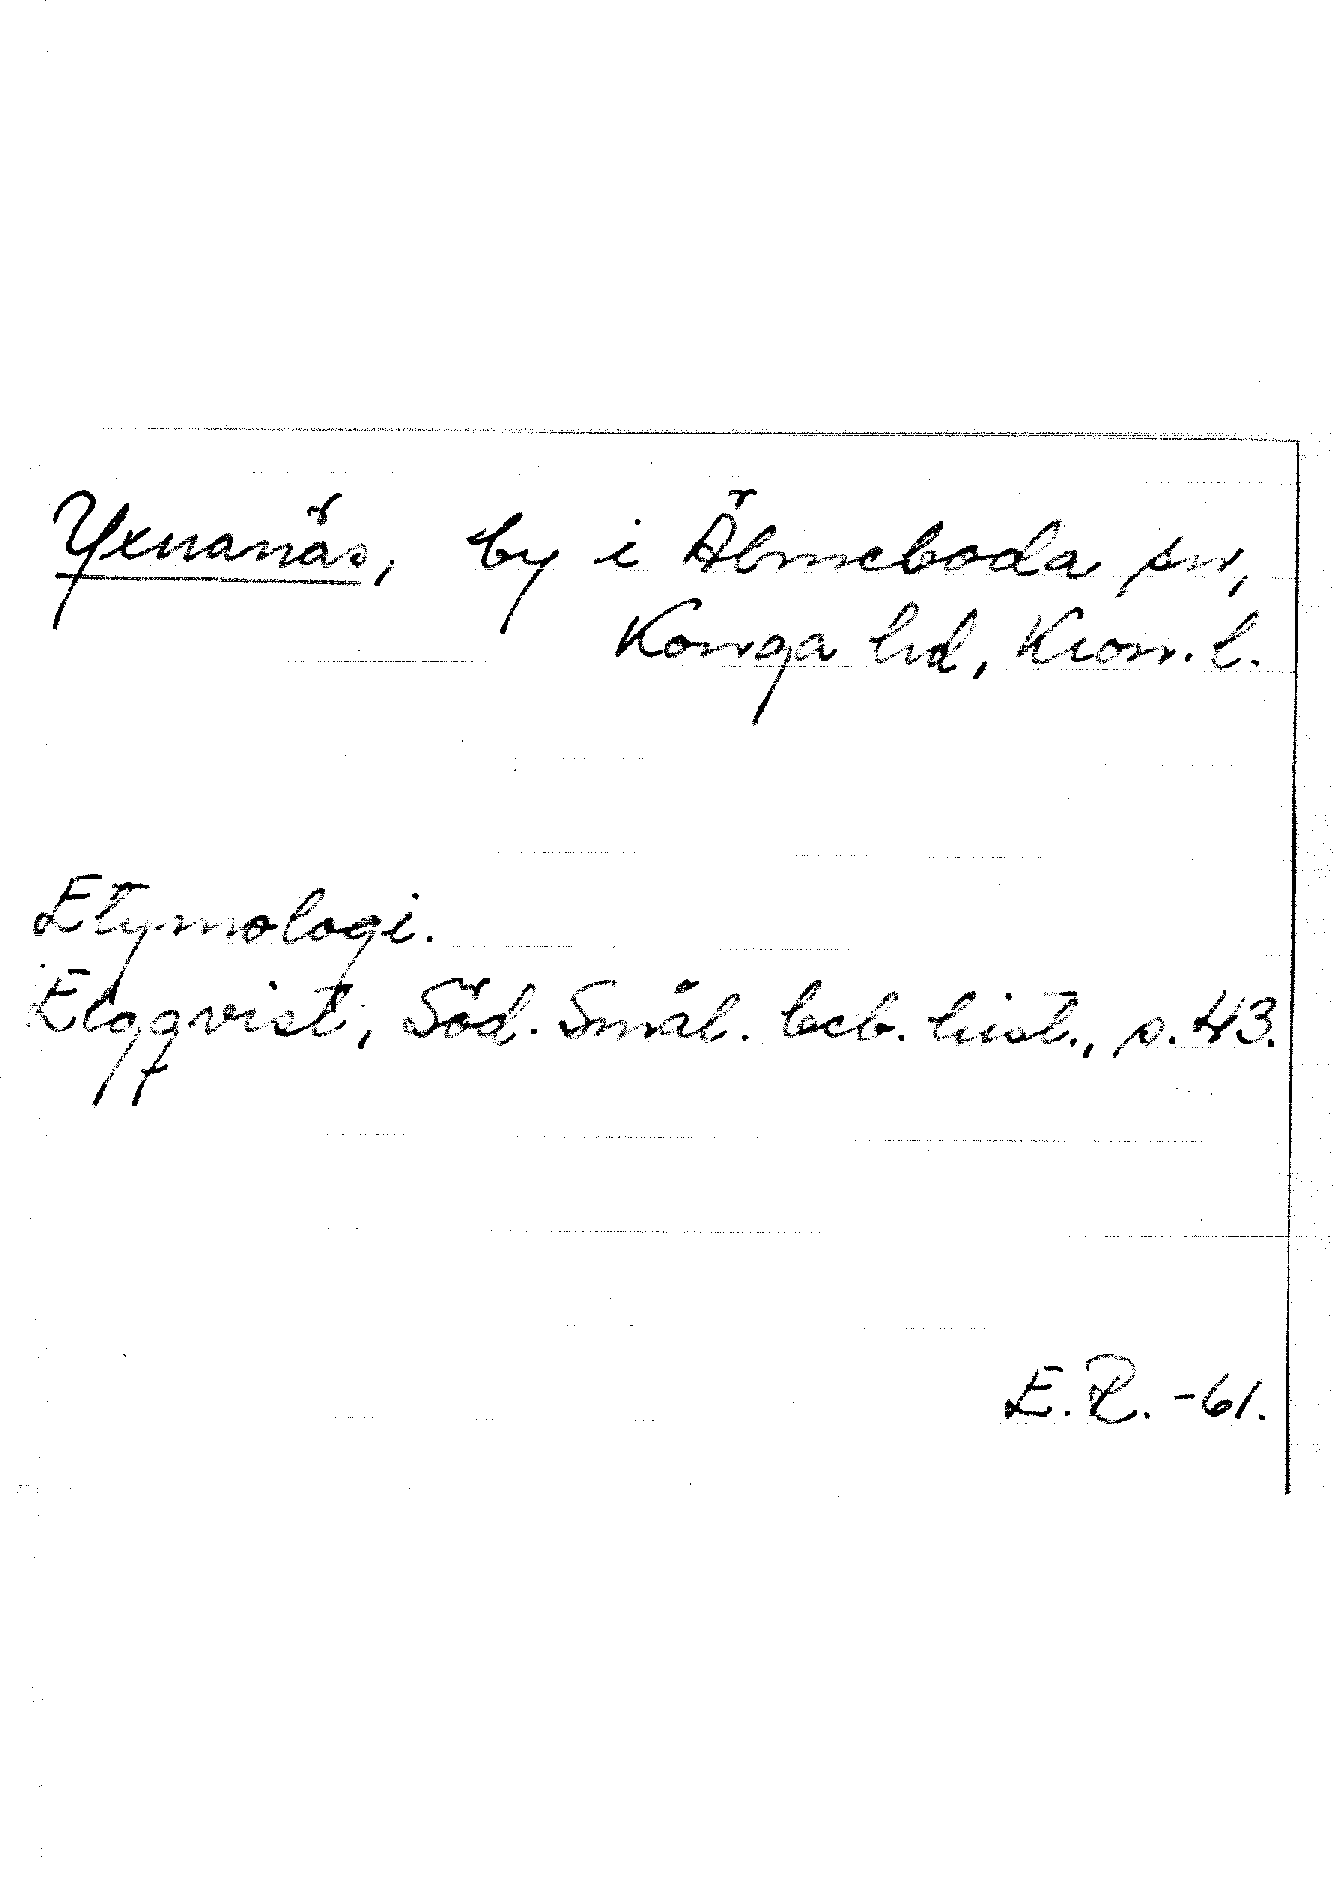 Yxnanäs, by i Älmeboda sn,
Konga hd, Kron. l.
Etymologi.
Elgqvist, Söd. Smål. beb. hist., s. 43.
E. R. -61.